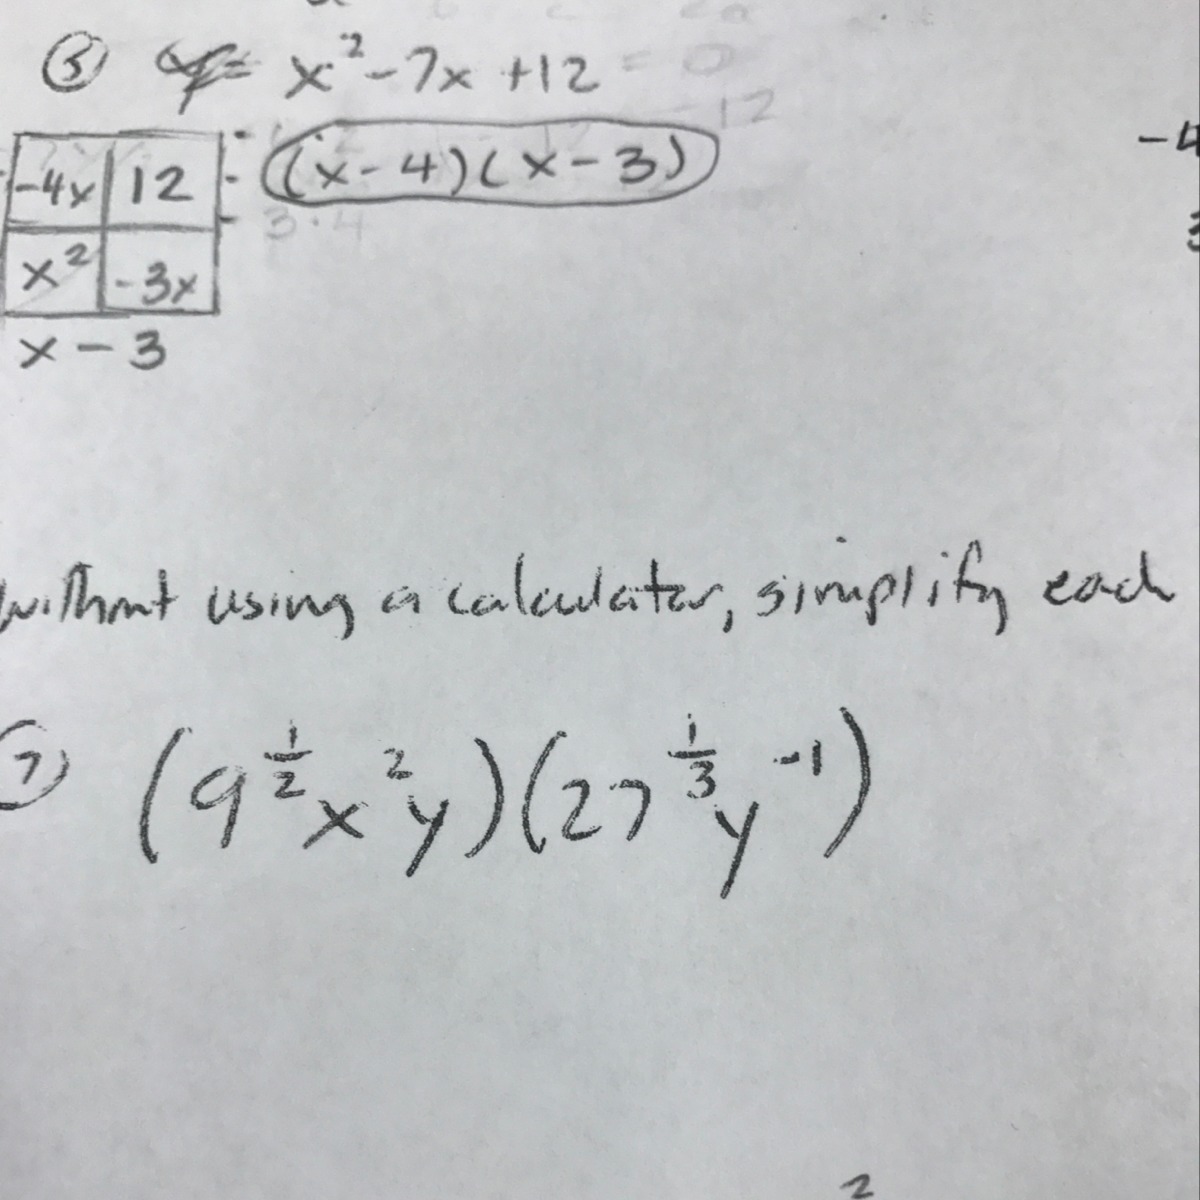 ⑤ y= x²-7x +12 = 0
12
-4x 12 (x-4)(x-3) -4
3·4 3
x² -3x
x - 3
without using a calculator, simplify each
⑦ (9^½ x²y)(27^⅓ y⁻¹)
2